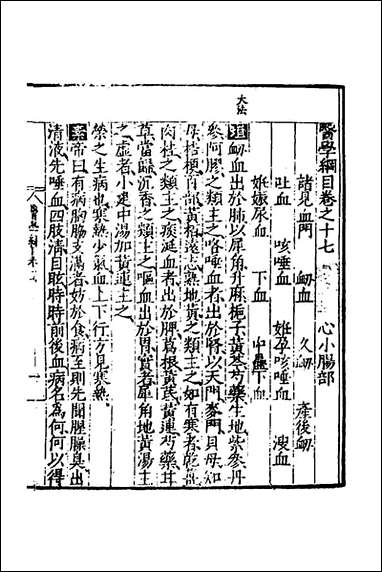 醫學綱目卷之十七　心小腸部
諸見血門　衂血　久衂　產後衂
吐血　咳唾血　妊孕咳唾血　溲血
妊娠尿血　下血　下血
大法
衂血出於肺以犀角升麻梔子黃芩芍藥生地紫參丹
參阿膠之類主之咯唾血者出於腎以天門麥門貝母知
母桔梗百部黃栢遠志熟地黃之類主之如有寒者乾薑
肉桂之類主之痰涎血者出於脾葛根黃芪黃連芍藥甘
草當歸沉香之類主之嘔血出於胃實者犀角地黃湯主
之虛者小建中湯加黃連主之
榮之生病也寒熱少氣血上下行方見寒熱
素帝曰有病胸脇支滿者妨於食病至則先聞腥臊臭出
清液先唾血四肢清目眩時時前後血病名為何何以得
醫學綱目